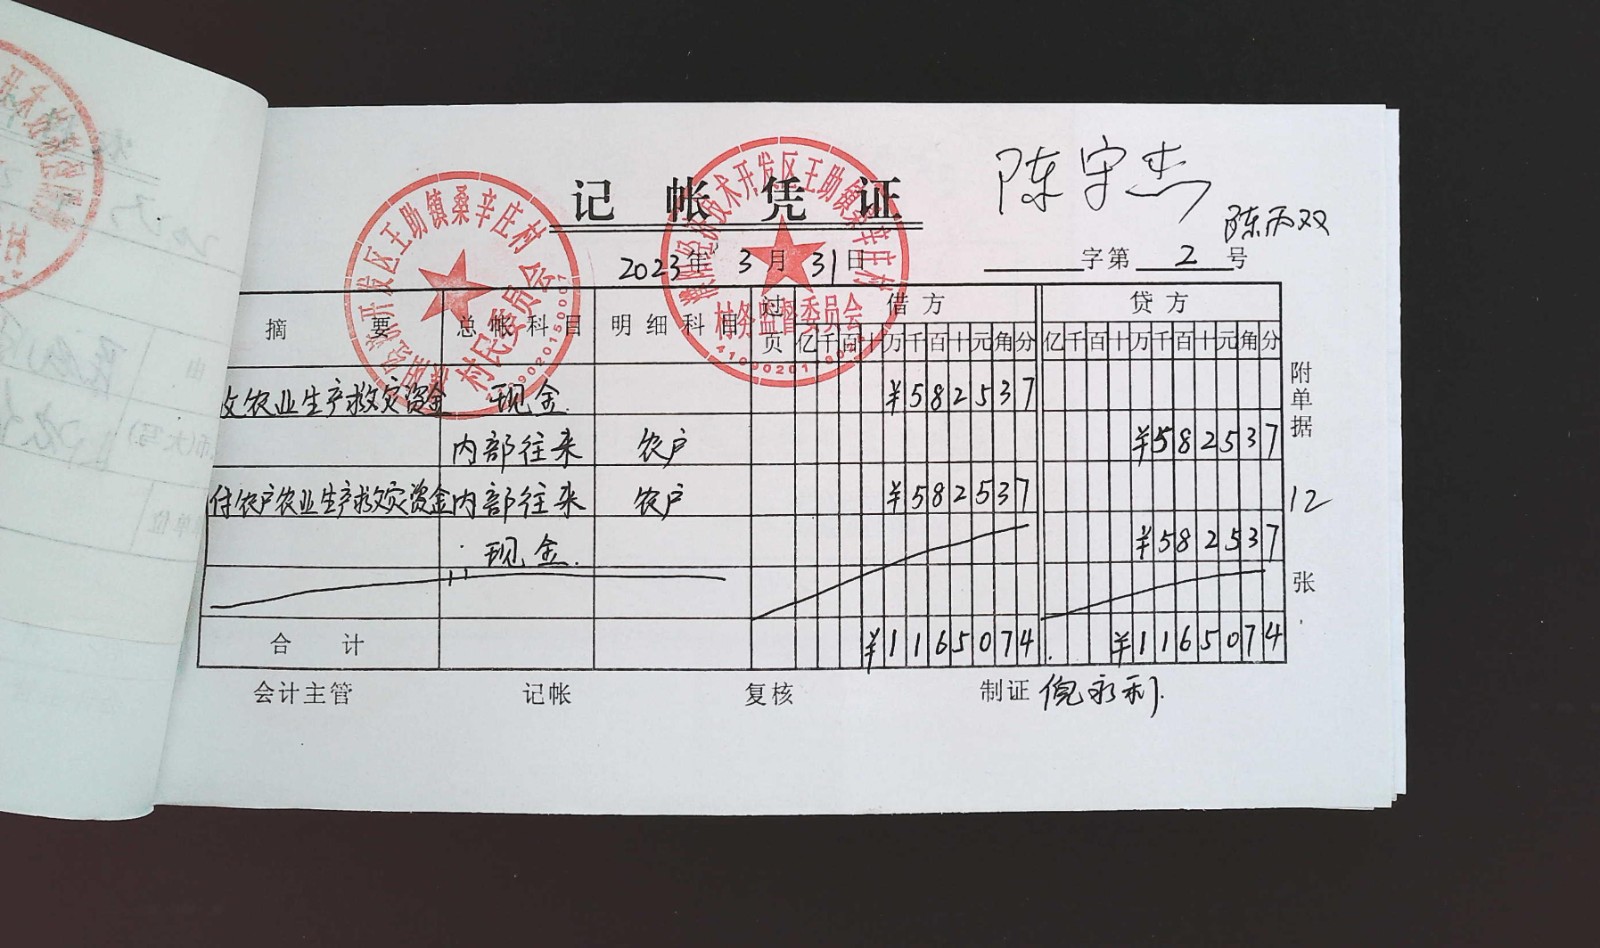 记帐凭证
陈守杰
陈丙双
2023年 3月 31日
字第 2 号
摘要 总帐科目 明细科目 过页 借方 贷方
亿千百十万千百十元角分 亿千百十万千百十元角分
收农业生产救灾资金 现金 ¥582537
内部往来 农户 ¥582537
付农户农业生产救灾资金 内部往来 农户 ¥582537
现金 ¥582537
合计 ¥1165074 ¥1165074
附单据 12 张
会计主管 记帐 复核 制证 倪永利
开发区王助镇桑辛庄村
村民委员会
技术开发区王助镇桑辛庄村
村务监督委员会